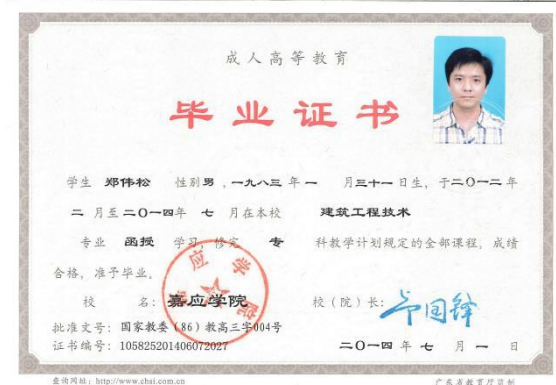 成人高等教育
毕业证书
学生 郑伟松 性别男，一九八三年一 月三十一日生，于二〇一二年
二月至二〇一四年 七 月在本校 建筑工程技术
专业 函授 学习，修完 专 科教学计划规定的全部课程，成绩
合格，准予毕业。
校 名：嘉应学院 校（院）长：
批准文号：国家教委（86）教高三字004号
证书编号：105825201406072027 二〇一四年七月一日
查询网址：http://www.chsi.com.cn 广东省教育厅监制